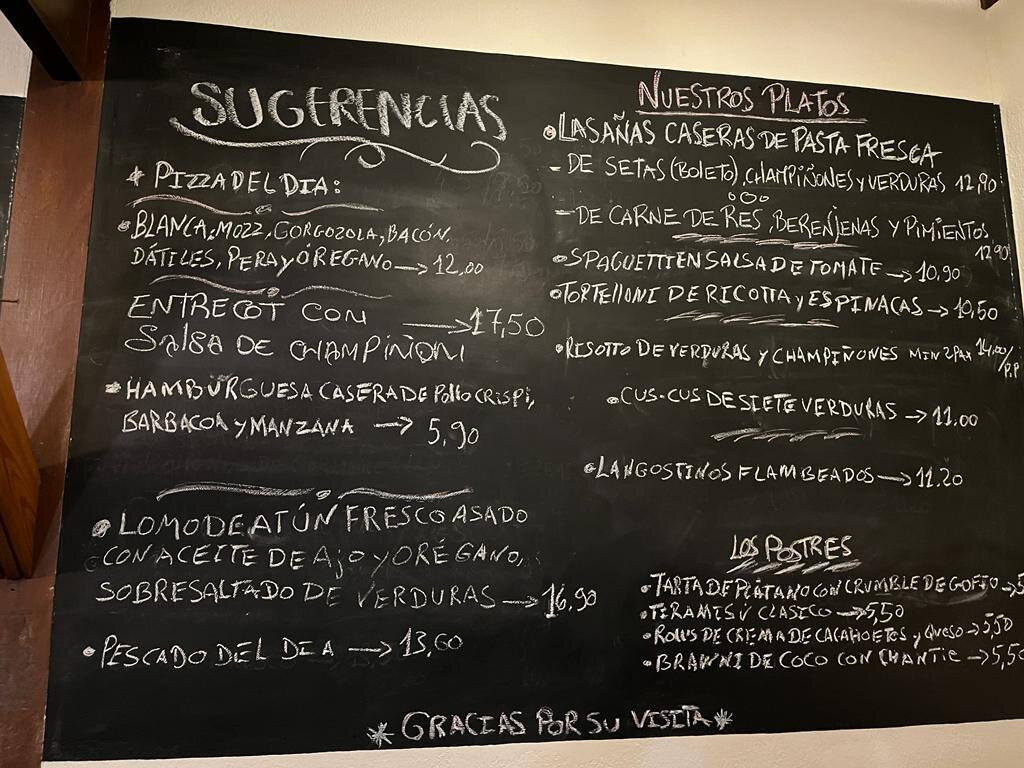 SUGERENCIAS
* PIZZA DEL DIA:
• BLANCA, MOZZ, GORGOZOLA, BACÓN,
DÁTILES, PERA Y ÓREGANO → 12,00
ENTRECOT CON → 17,50
SALSA DE CHAMPIÑONI
• HAMBURGUESA CASERA DE POLLO CRISPI,
BARBACOA Y MANZANA → 5,90
• LOMO DE ATÚN FRESCO ASADO
CON ACEITE DE AJO Y ORÉGANO,
SOBRESALTADO DE VERDURAS → 16,90
• PESCADO DEL DIA → 13,60
NUESTROS PLATOS
• LASAÑAS CASERAS DE PASTA FRESCA
- DE SETAS (BOLETO), CHAMPIÑONES Y VERDURAS 12,90
- DE CARNE DE RES, BERENJENAS Y PIMIENTOS
12,90
• SPAGUETTI EN SALSA DE TOMATE → 10,90
• TORTELLONI DE RICOTTA Y ESPINACAS → 10,50
• RISOTTO DE VERDURAS Y CHAMPIÑONES MIN 2 PAX 14,00/
P.P
• CUS-CUS DE SIETE VERDURAS → 11.00
• LANGOSTINOS FLAMBEADOS → 11.20
LOS POSTRES
• TARTA DE PLÁTANO CON CRUMBLE DE GOFIO → 5
• TIRAMISÚ CLASICO → 5,50
• ROLLS DE CREMA DE CACAHOETES Y QUESO → 5,50
• BRAWNI DE COCO CON CHANTIE → 5,50
* GRACIAS POR SU VISITA *